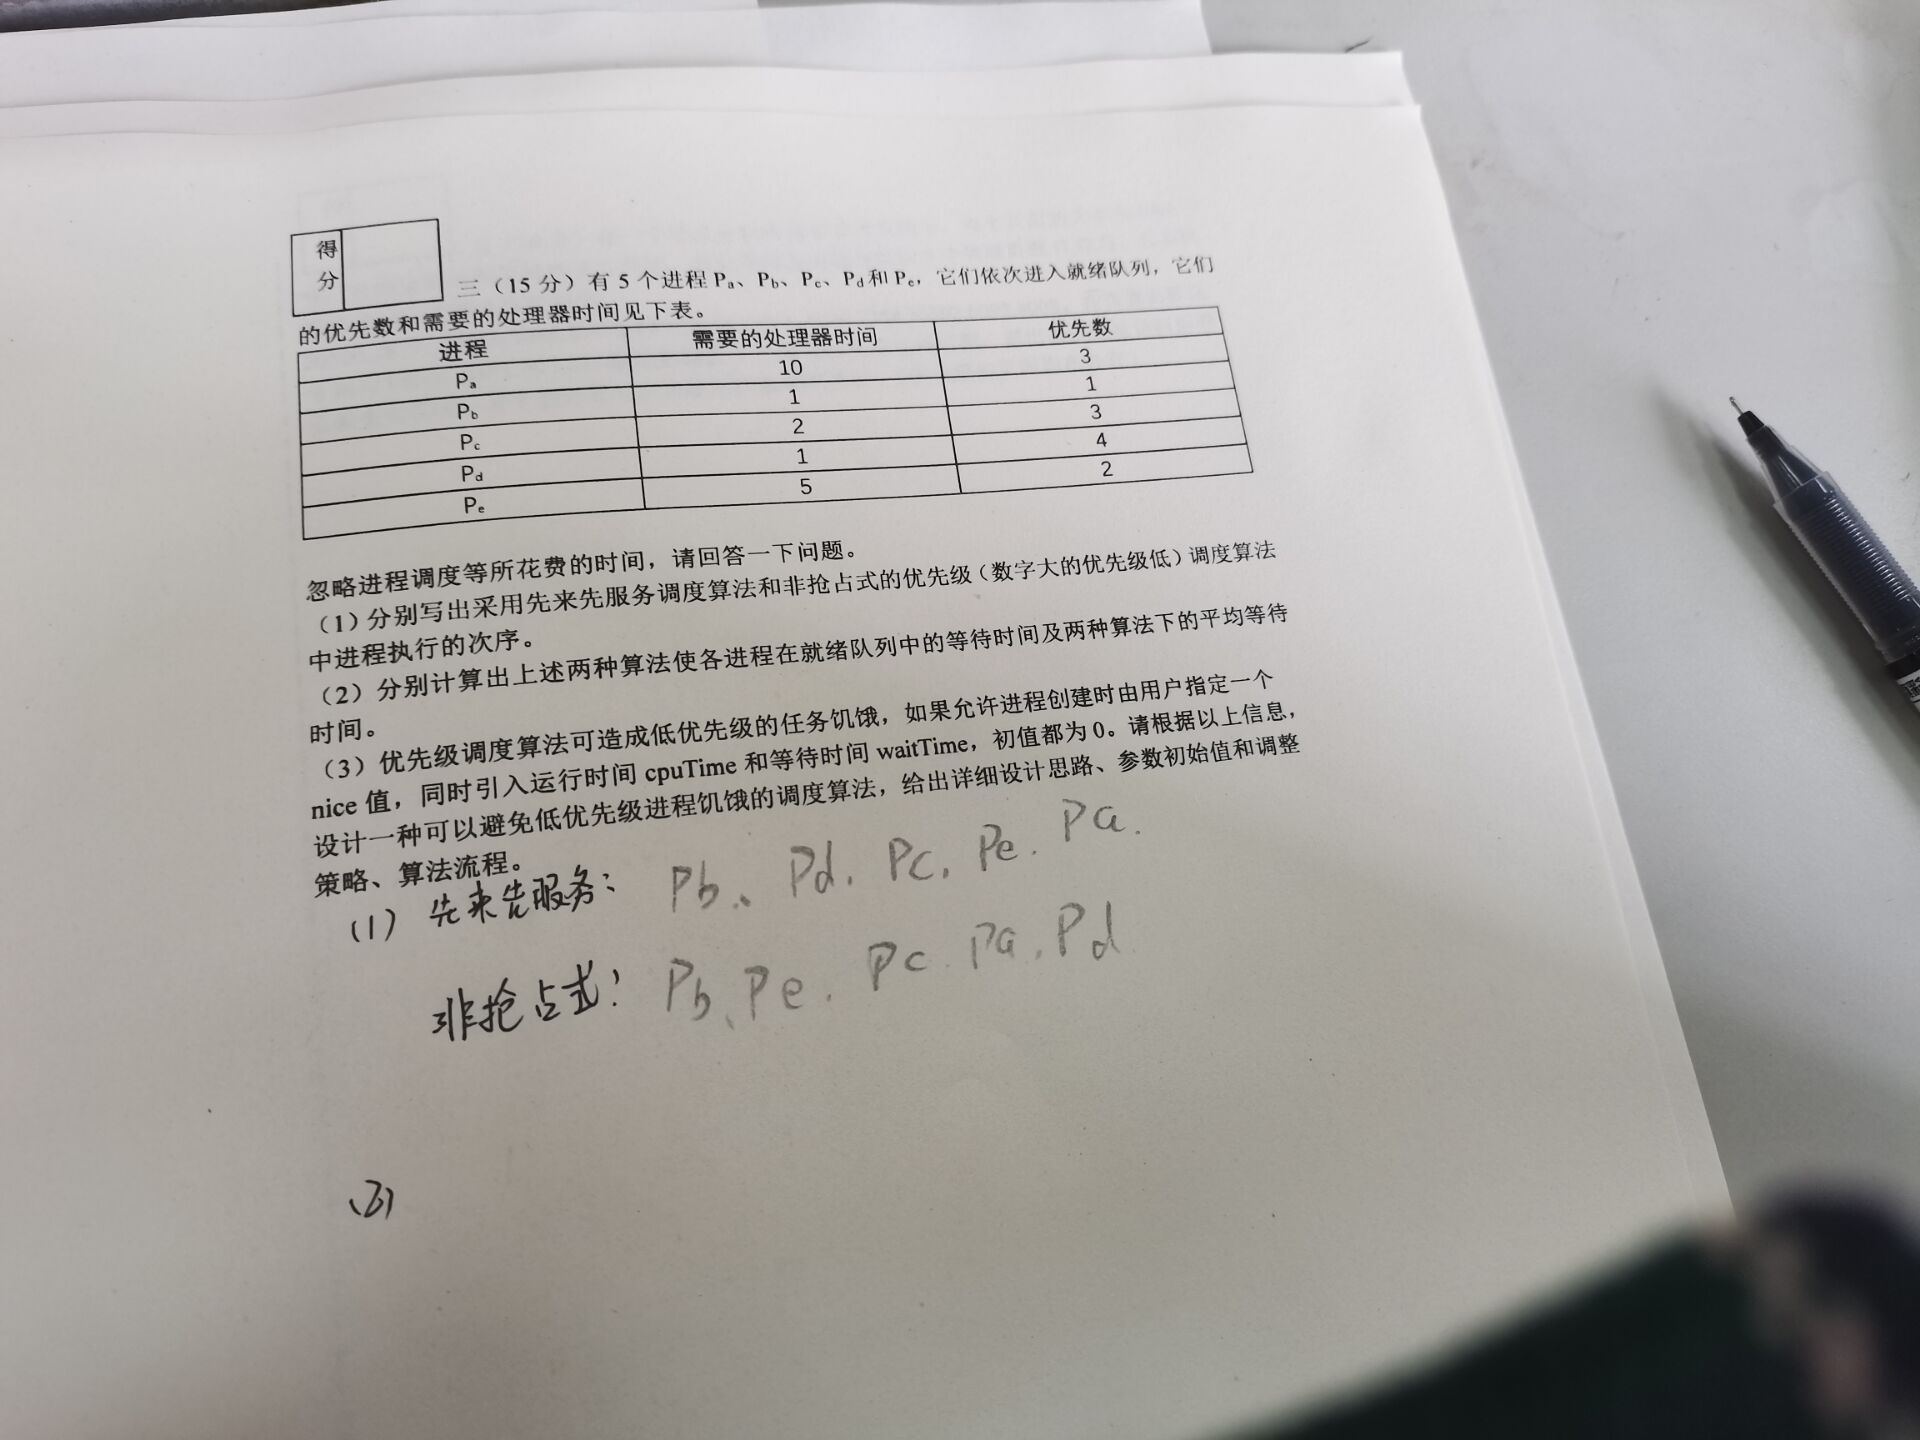 得分
三（15 分）有 5 个进程 Pa、Pb、Pc、Pd和 Pe，它们依次进入就绪队列，它们
的优先数和需要的处理器时间见下表。
进程 需要的处理器时间 优先数
Pa 10 3
Pb 1 1
Pc 2 3
Pd 1 4
Pe 5 2
忽略进程调度等所花费的时间，请回答一下问题。
（1）分别写出采用先来先服务调度算法和非抢占式的优先级（数字大的优先级低）调度算法
中进程执行的次序。
（2）分别计算出上述两种算法使各进程在就绪队列中的等待时间及两种算法下的平均等待
时间。
（3）优先级调度算法可造成低优先级的任务饥饿，如果允许进程创建时由用户指定一个
nice 值，同时引入运行时间 cpuTime 和等待时间 waitTime，初值都为 0。请根据以上信息，
设计一种可以避免低优先级进程饥饿的调度算法，给出详细设计思路、参数初始值和调整
策略、算法流程。
(1) 先来先服务： Pb、Pd、Pc、Pe、Pa.
非抢占式： Pb、Pe、Pc、Pa、Pd